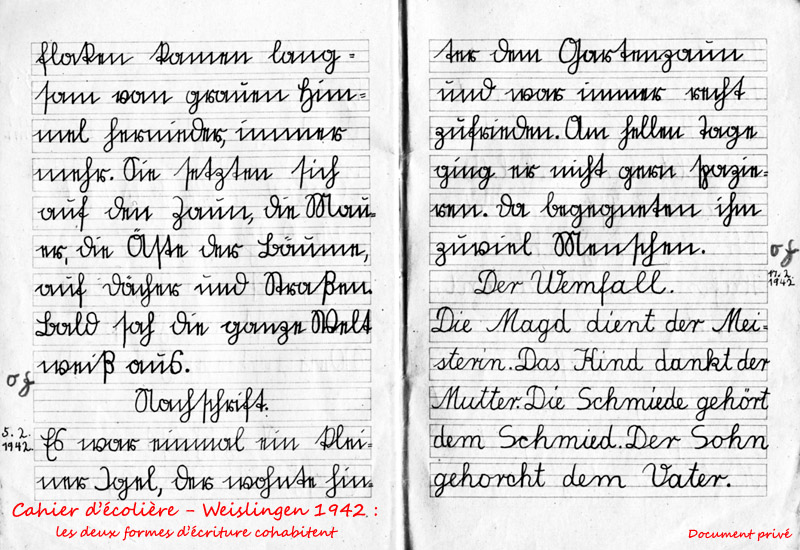 flocken kamen lang-
sam vom grauen Him-
mel hernieder, immer
mehr. Sie setzten sich
auf den Zaun, die Mau-
er, die Äste der Bäume,
auf Dächer und Straßen.
Bald sah die ganze Welt
weiß aus.
Nachschrift.
5. 2. 1942.
Es war einmal ein klei-
ner Igel, der wohnte hin-
ter dem Gartenzaun
und war immer recht
zufrieden. Am hellen Tage
ging er nicht gern spazie-
ren. Da begegneten ihm
zuviel Menschen.
17. 2. 1942
Der Wemfall.
Die Magd dient der Mei-
sterin. Das Kind dankt der
Mutter. Die Schmiede gehört
dem Schmied. Der Sohn
gehorcht dem Vater.
Cahier d'écolière - Weislingen 1942 :
les deux formes d'écriture cohabitent
Document privé